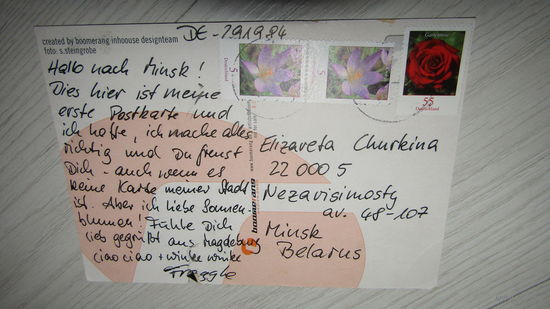 DE-791984
created by boomerang inhoouse designteam
foto: s.steingrobe
Hallo nach Minsk!
Dies hier ist meine
erste Postkarte und
ich hoffe, ich mache alles
richtig und Du freust
Dich - auch wenn es
keine Karte meiner Stadt
ist. Aber ich liebe Sonnen-
blumen! Fühle Dich
lieb gegrüßt aus Magdeburg
ciao ciao + winke winke
5
5
Gartenrose
55
Deutschland
boomerang
Elizaveta Churkina
22 000 5
Nezavisimosty
av. 48-107
Minsk
Belarus